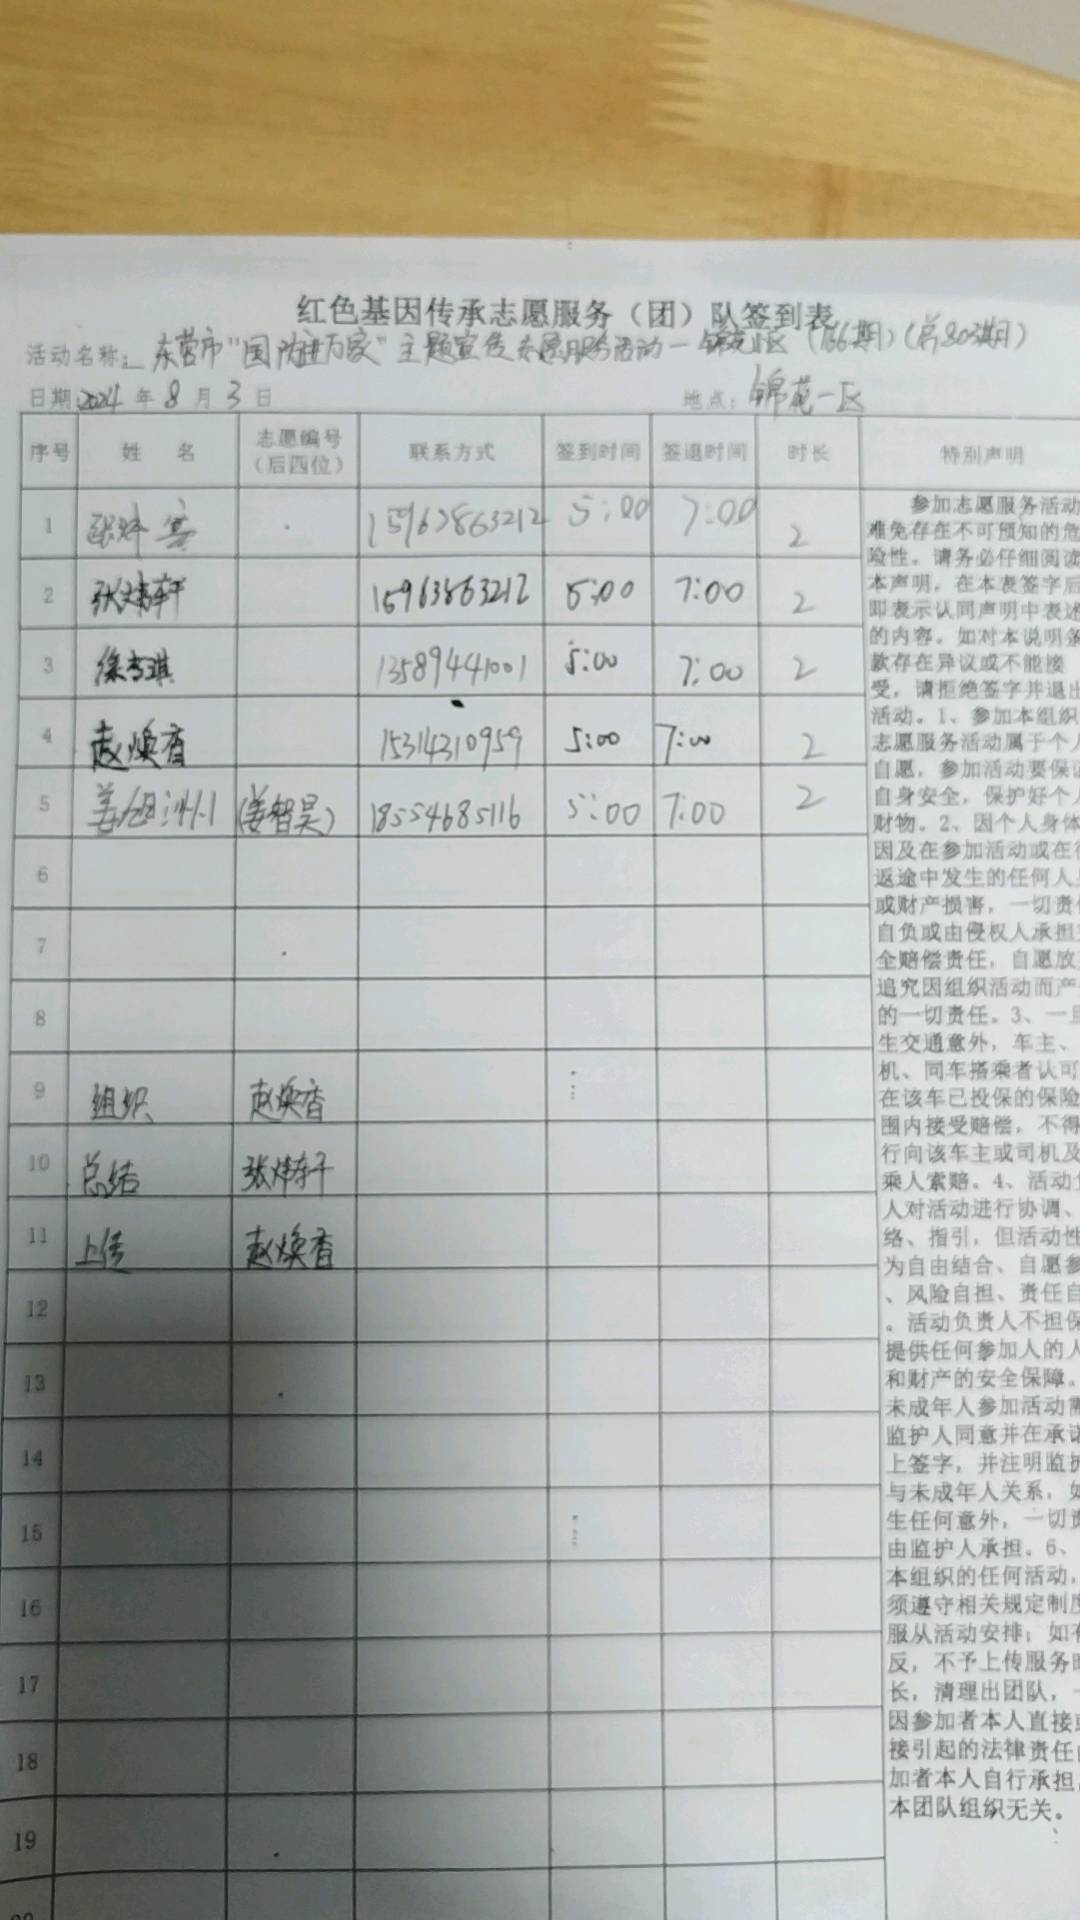 红色基因传承志愿服务（团）队签到表
活动名称： 东营市“国防进万家”主题宣传志愿服务活动—锦苑小区（166期）（总803期）
日期 2024 年 8 月 3 日 地点： 锦苑一区
序号 姓 名 志愿编号（后四位） 联系方式 签到时间 签退时间 时长 特别声明
1 5:00 7:00 2
2 张炜轩 15963863212 5:00 7:00 2
3 13589441001 5:00 7:00 2
4 赵焕香 15314310959 5:00 7:00 2
5 (姜智昊) 18554685116 5:00 7:00 2
6
7
8
9 组织 赵焕香
10 总结 张炜轩
11 上传 赵焕香
12
13
14
15
16
17
18
19
参加志愿服务活动
难免存在不可预知的危
险性。请务必仔细阅读
本声明，在本表签字后
即表示认同声明中表述
的内容。如对本说明条
款存在异议或不能接
受，请拒绝签字并退出
活动。1、参加本组织
志愿服务活动属于个人
自愿，参加活动要保证
自身安全，保护好个人
财物。2、因个人身体
因及在参加活动或在往
返途中发生的任何人身
或财产损害，一切责任
自负或由侵权人承担
全赔偿责任，自愿放
追究因组织活动而产
的一切责任。3、一旦
生交通意外，车主、
机、同车搭乘者认可
在该车已投保的保险
围内接受赔偿，不得
行向该车主或司机及
乘人索赔。4、活动负
人对活动进行协调、
络、指引，但活动性
为自由结合、自愿参
、风险自担、责任自
。活动负责人不担保
提供任何参加人的人
和财产的安全保障。
未成年人参加活动需
监护人同意并在承诺
上签字，并注明监护
与未成年人关系，如
生任何意外，一切责
由监护人承担。6、
本组织的任何活动，
须遵守相关规定制度
服从活动安排；如有
反，不予上传服务时
长，清理出团队，一
因参加者本人直接或
接引起的法律责任由
加者本人自行承担，
本团队组织无关。